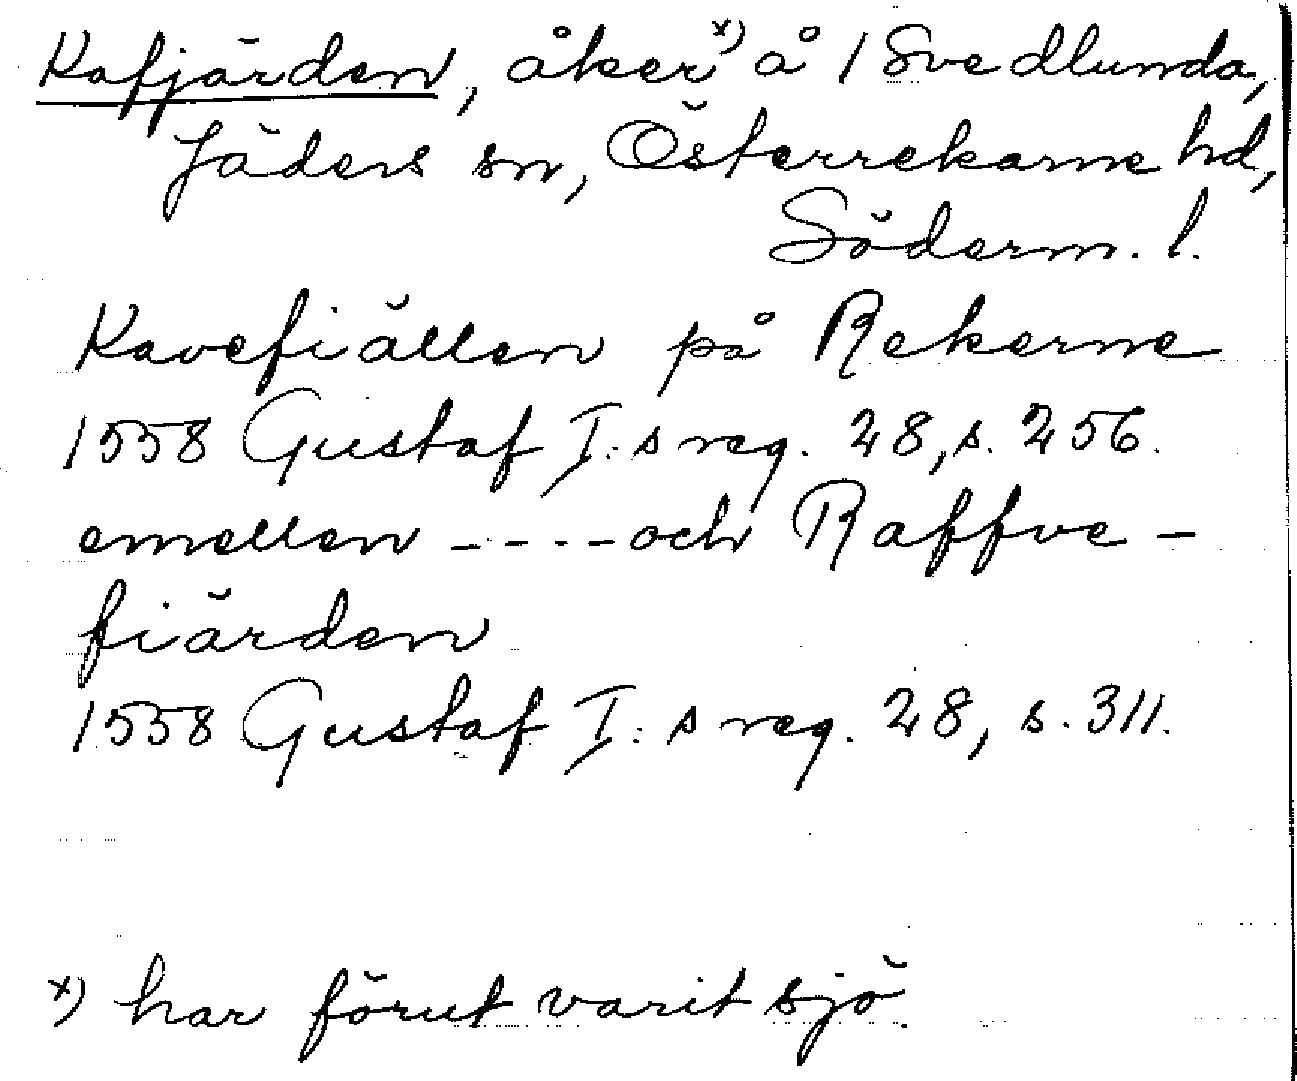 Kafjärden, åker x) å 1 Svedlunda,
Jäders sn, Österrekarne hd,
Söderm. l.
Kavefiällen på Rekerne
1558 Gustaf I:s reg. 28, s. 256.
emellen - - - - och Raffve-
fiärden
1558 Gustaf I:s reg. 28, s. 311.
x) har förut varit sjö.